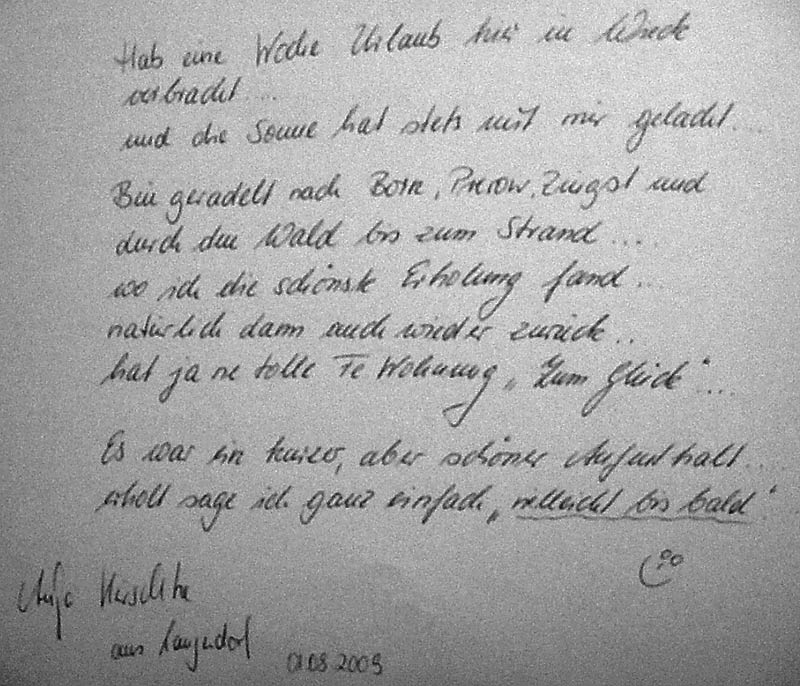 Hab eine Woche Urlaub hier in Wieck
verbracht....
und die Sonne hat stets mit mir gelacht....
Bin geradelt nach Born, Prerow, Zingst und
durch den Wald bis zum Strand....
wo ich die schönste Erholung fand...
natürlich dann auch wieder zurück..
hat ja ne tolle Fe Wohnung „Zum Glück"....
Es war ein kurzer, aber schöner Aufenthalt....
erholt sage ich ganz einfach „vielleicht bis bald"
aus Langendorf 01.08.2009